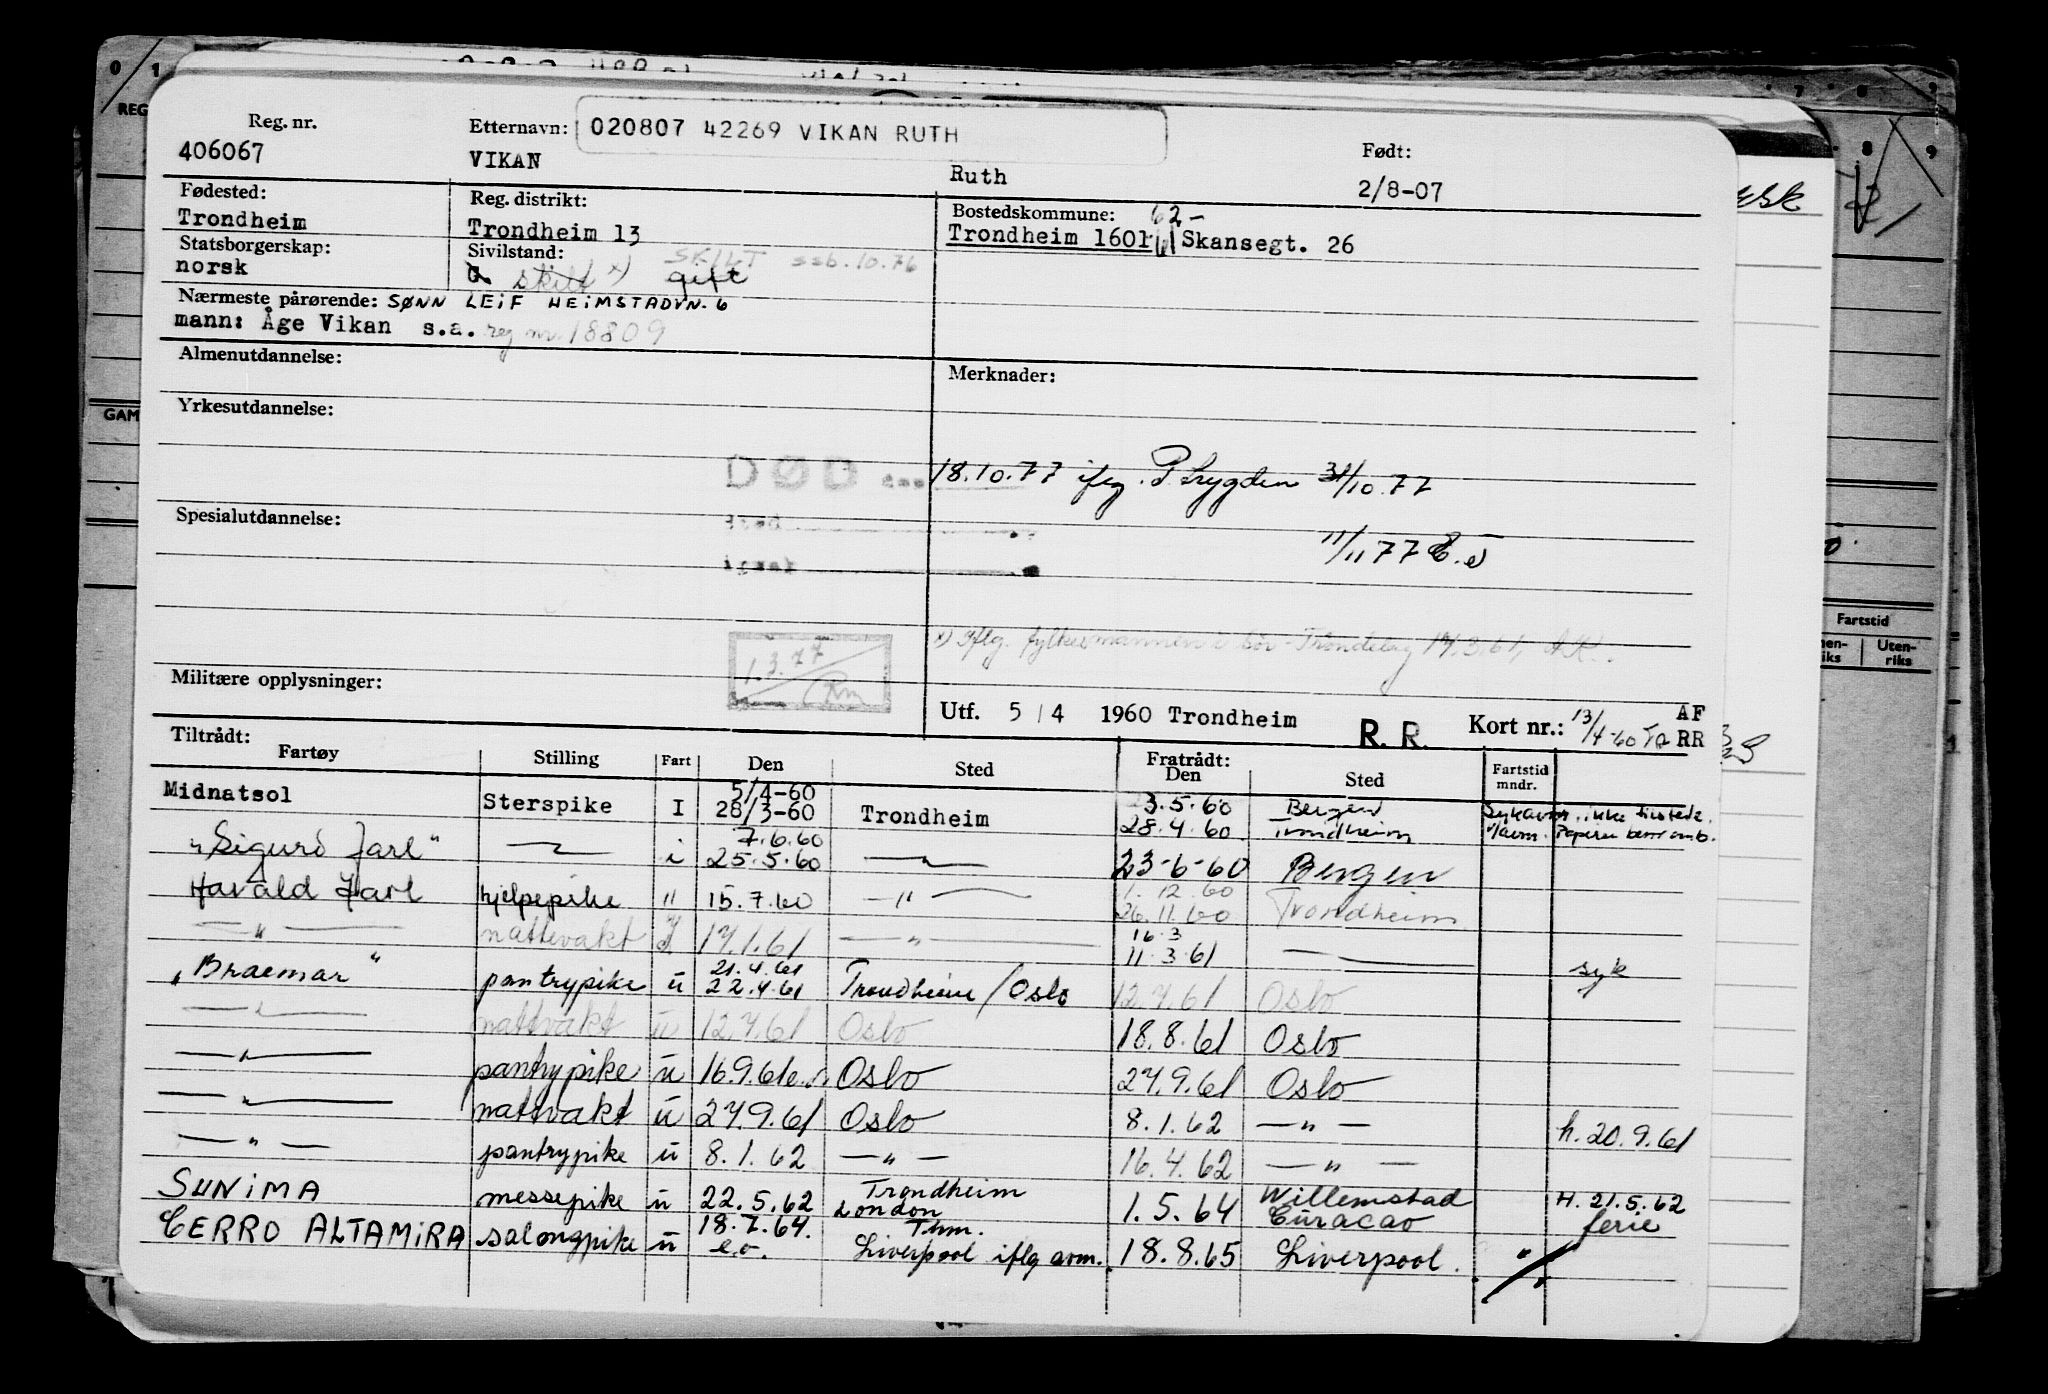 Reg. nr. 406067
Etternavn: 020807 42269 VIKAN RUTH
VIKAN Ruth
Født: 2/8-07
Fødested: Trondheim
Reg. distrikt: Trondheim 13
Bostedskommune: 62-
Trondheim 1601-61 Skansegt. 26
Statsborgerskap: norsk
Sivilstand: G skilt x) gift SKILT ssb. 10.76
Nærmeste pårørende: SØNN LEIF HEIMSTADVN. 6
mann: Åge Vikan s.a. reg nr. 18809
Almenutdannelse:
Merknader:
Yrkesutdannelse:
DØD 18.10.77 iflg. P. Trygden 31/10.77
Spesialutdannelse:
11/11 77
x) Iflg. fylkesmannen i Sør-Trøndelag 17.3.61,
1.3.77
Militære opplysninger:
Utf. 5/4 1960 Trondheim R. R. Kort nr.: 13/4-60 AF RR
Tiltrådt: Fratrådt:
Fartøy Stilling Fart Den Sted Den Sted Fartstid mndr.
Midnatsol Sterspike I 5/4-60 28/3-60 Trondheim 3.5.60 Bergen 28.4.60 Trondheim
"Sigurd Jarl" —"— i 7.6.60 25.5.60 —"— 23-6-60 Bergen
Harald Jarl hjelpepike " 15.7.60 —"— 1.12.60 26.11.60 Trondheim
—"— nattevakt I 17.1.61 —"— 16.3 11.3.61 —"— syk
"Braemar" pantrypike u 21.4.61 22.4.61 Trondheim/Oslo 12.7.61 Oslo
—"— nattvakt u 12.7.61 Oslo 18.8.61 Oslo
—"— pantrypike u 16.9.61 e.o. Oslo 27.9.61 Oslo
—"— nattvakt u 27.9.61 Oslo 8.1.62 —"— h. 20.9.61
—"— pantrypike u 8.1.62 —"— 16.4.62 —"—
SUNIMA messepike u 22.5.62 Trondheim London 1.5.64 Willemstad Curacao H. 21.5.62 ferie
CERRO ALTAMIRA salongpike u 18.7.64. e.o. Thm. Liverpool iflg avm. 18.8.65 Liverpool.
Fartstid
Uten-
riks